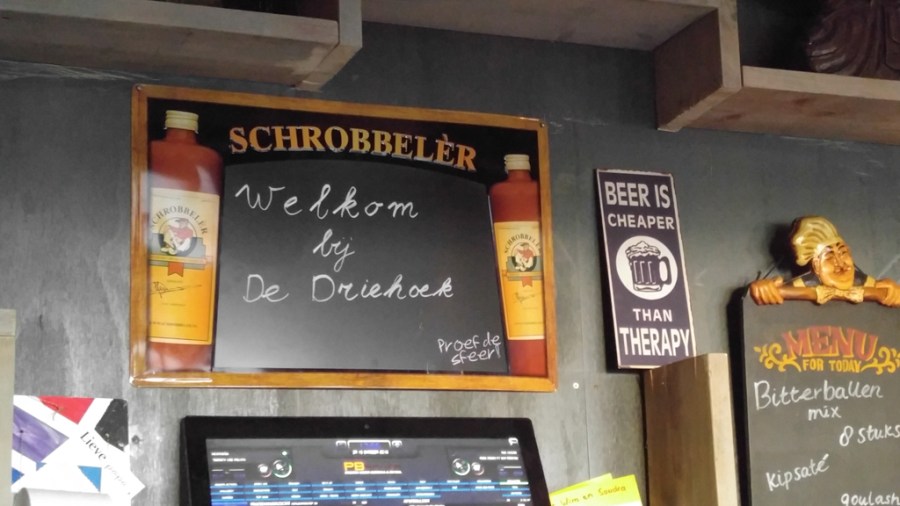 SCHROBBELÈR
Welkom
bij
De Driehoek
Proef de
sfeer!
SCHROBBELÈR
SCHROBBELÈR
BEER IS
CHEAPER
THAN
THERAPY
MENU
FOR TODAY
Bitterballen
mix
8 stuks
Kipsaté
goulash
Lieve
PB
Wim en Sandra